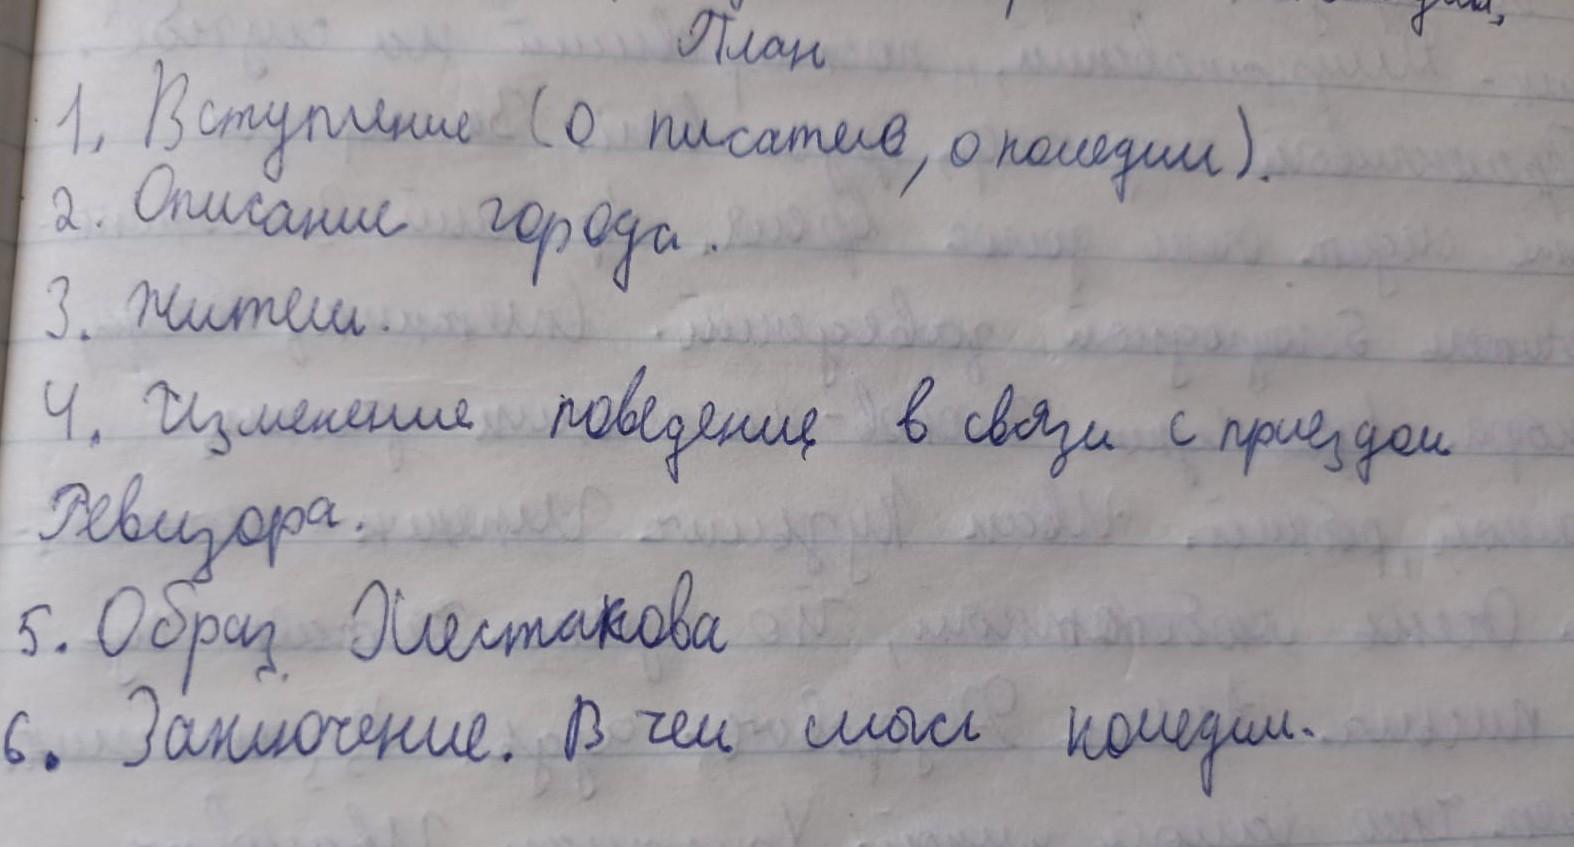 План
1. Вступление (о писателе, о комедии).
2. Описание города.
3. Жители.
4. Изменение поведение в связи с приездом
Ревизора.
5. Образ Хлестакова
6. Заключение. В чем смысл комедии.